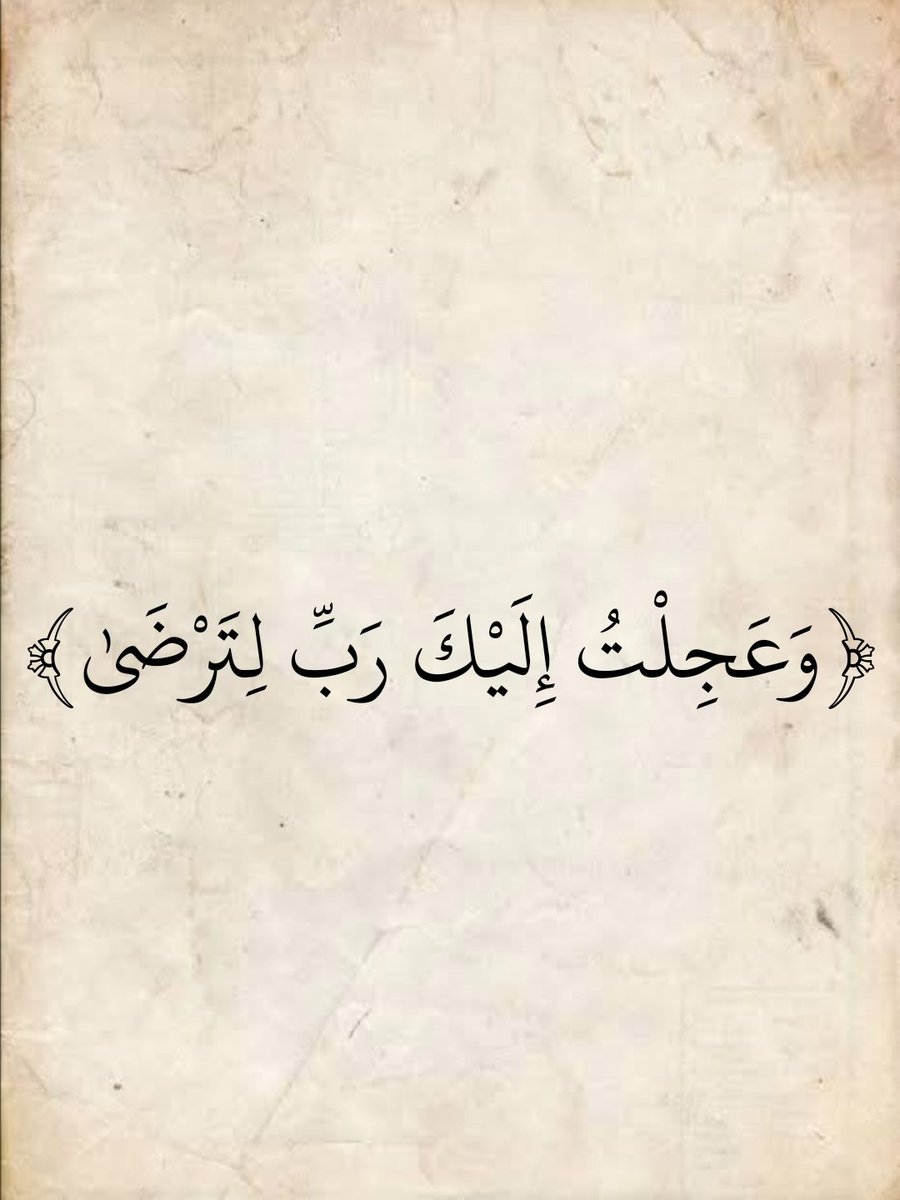 ﴿وَعَجِلْتُ إِلَيْكَ رَبِّ لِتَرْضَىٰ﴾